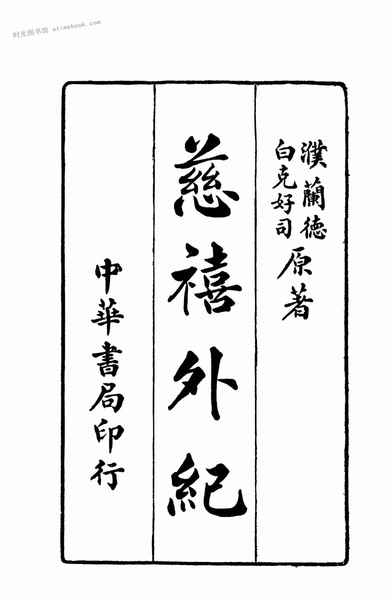 时光图书馆 etimebook.com
濮蘭德
白克好司
原著
慈禧外紀
中華書局印行